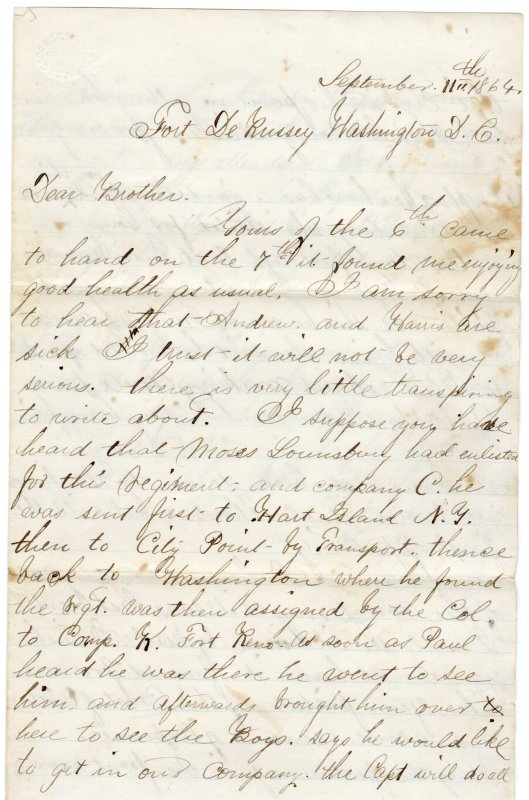 September. 11th 1864.
Fort De Russey Washington D. C.
Dear Brother.
Yours of the 6th came
to hand on the 7th it found me enjoying
good health as usual. I am sorry
to hear that Andrew and Harris are
sick I trust it will not be very
serious. there is very little transpiring
to write about. I suppose you have
heard that Moses Lounsbury had enlisted
for this regiment and company C. he
was sent first to Hart Island N.Y.
then to City Point by Transport. thence
back to Washington where he found
the regt. was then assigned by the Col.
to Comp. K. Fort Reno. as soon as Paul
heard he was there he went to see
him. and afterwards brought him over to
here to see the Boys. says he would like
to get in our company. the Capt will do all